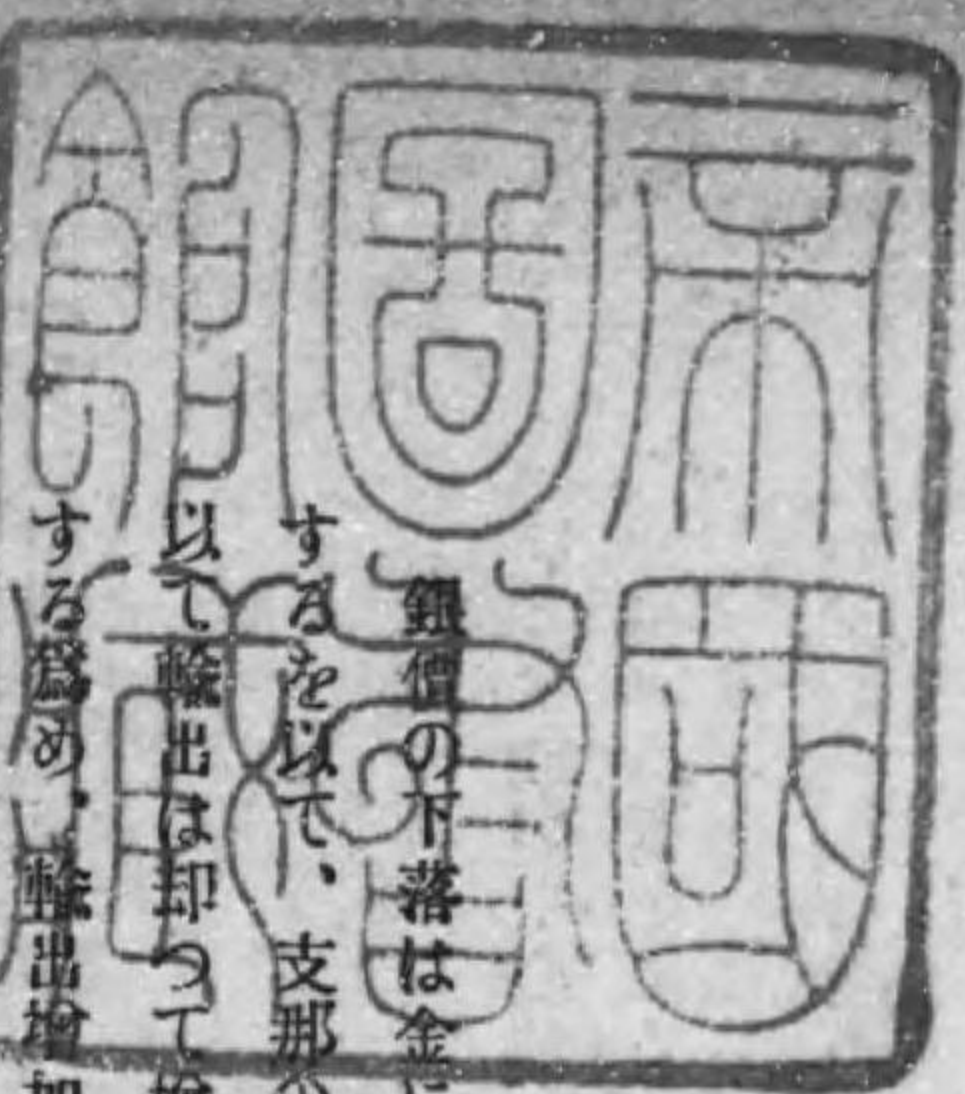 帝國
圖書
館藏
銀價の下落は金に
するを以て、支那の
以て輸出は却つて增
する爲め、輸出增加